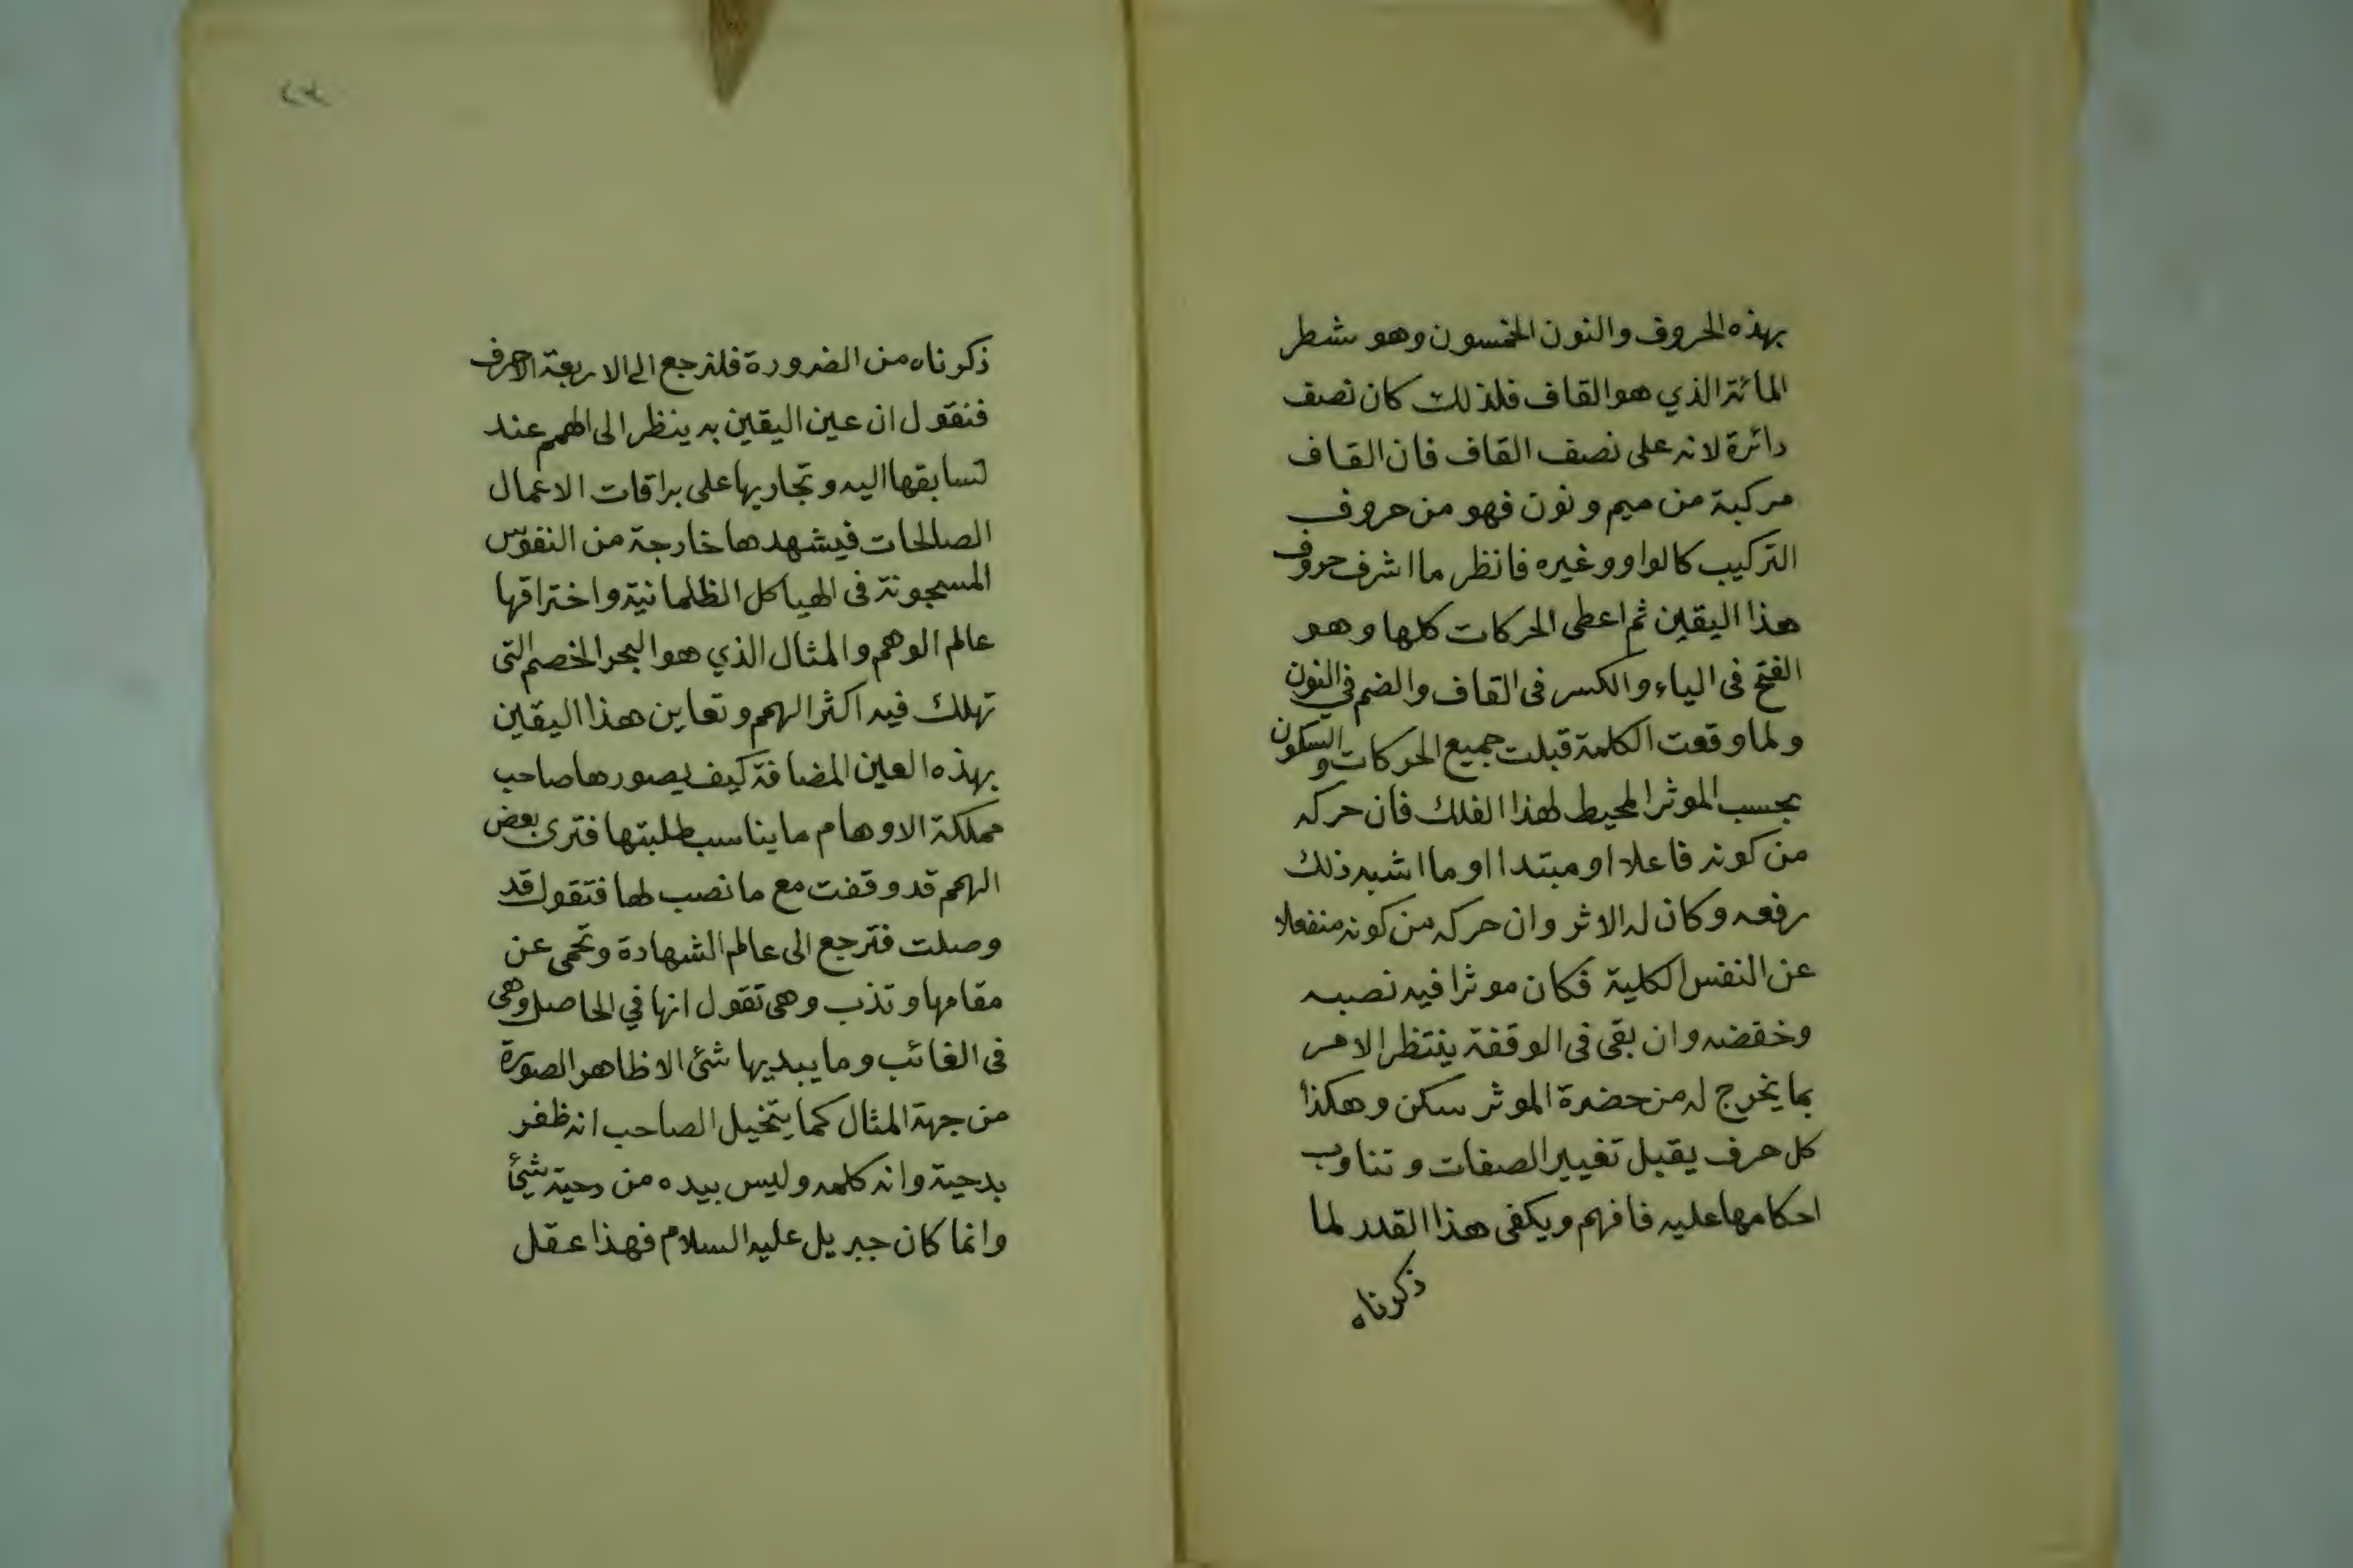 بهذه الحروف والنون الخمسون وهو شطر
المائة الذي هو القاف فلذلك كان نصف
دائرة لانه على نصف القاف فان القاف
مركبة من ميم ونون فهو من حروف
التركيب كالواو وغيره فانظر ما اشرف حروف
هذا اليقين ثم اعطى الحركات كلها وهو
الفتح فى الياء والكسر فى القاف والضم في النون
ولما وقعت الكلمة قبلت جميع الحركات والسكون
بحسب الموثر المحيط لهذا الفلك فان حركه
من كونه فاعلا او مبتدا او ما اشبه ذلك
رفعه وكان له الاثر وان حركه من كونه منفعلا
عن النفس الكلية فكان موثرا فيه نصبه
وخفضه وان بقى فى الوقفة ينتظر الامر
بما يخرج له من حضرة الموثر سكن وهكذا
كل حرف يقبل تغيير الصفات وتناوب
احكامها عليه فافهم ويكفى هذا القدر لما
ذكرناه
٢٣
ذكرناه من الضرورة فلنرجع الى الاربعة الاحرف
فنقول ان عين اليقين به ينظر الى الهمم عند
تسابقها اليه وتجاريها على براقات الاعمال
الصالحات فيشهدها خارجة من النفوس
المسجونة فى الهياكل الظلمانية واختراقها
عالم الوهم والمثال الذي هو البحر الخضم التى
تهلك فيه اكثر الهمم وتعاين هذا اليقين
بهذه العين المضافة كيف يصورها صاحب
مملكة الاوهام ما يناسب طلبتها فترى بعض
الهمم قد وقفت مع ما نصب لها فتقول قد
وصلت فترجع الى عالم الشهادة وتحمى عن
مقامها وتذب وهى تقول انها في الحاصل وهى
فى الغائب وما يبديها شئ الا ظاهر الصورة
من جهة المثال كما يتخيل الصاحب انه ظفر
بدحية وانه كلمه وليس بيده من دحية شيئا
وانما كان جبريل عليه السلام فهذا عقل